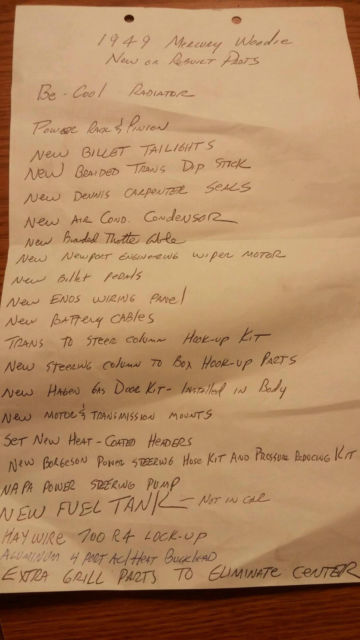 1949 Mercury Woodie
New or Rebuilt Parts
Be-Cool Radiator
Power Rack & Pinion
New Billet Tailights
New Braided Trans Dip Stick
New Dennis Carpenter Seals
New Air Cond. Condensor
New Braided Throttle Cable
New Newport Engineering Wiper Motor
New Billet Pedals
New Enos Wiring Panel
New Battery Cables
Trans to Steer Column Hook-up Kit
New Steering Column to Box Hook-up Parts
New Hagen Gas Door Kit - Installed in Body
New Motor & Transmission Mounts
Set New Heat-Coated Headers
New Borgeson Power Steering Hose Kit and Pressure Reducing Kit
NAPA Power Steering Pump
NEW FUEL TANK - Not in car
Haywire 700 R4 Lock-up
Aluminum 4 Port AC/Heat Bulkhead
Extra Grill Parts to Eliminate Center